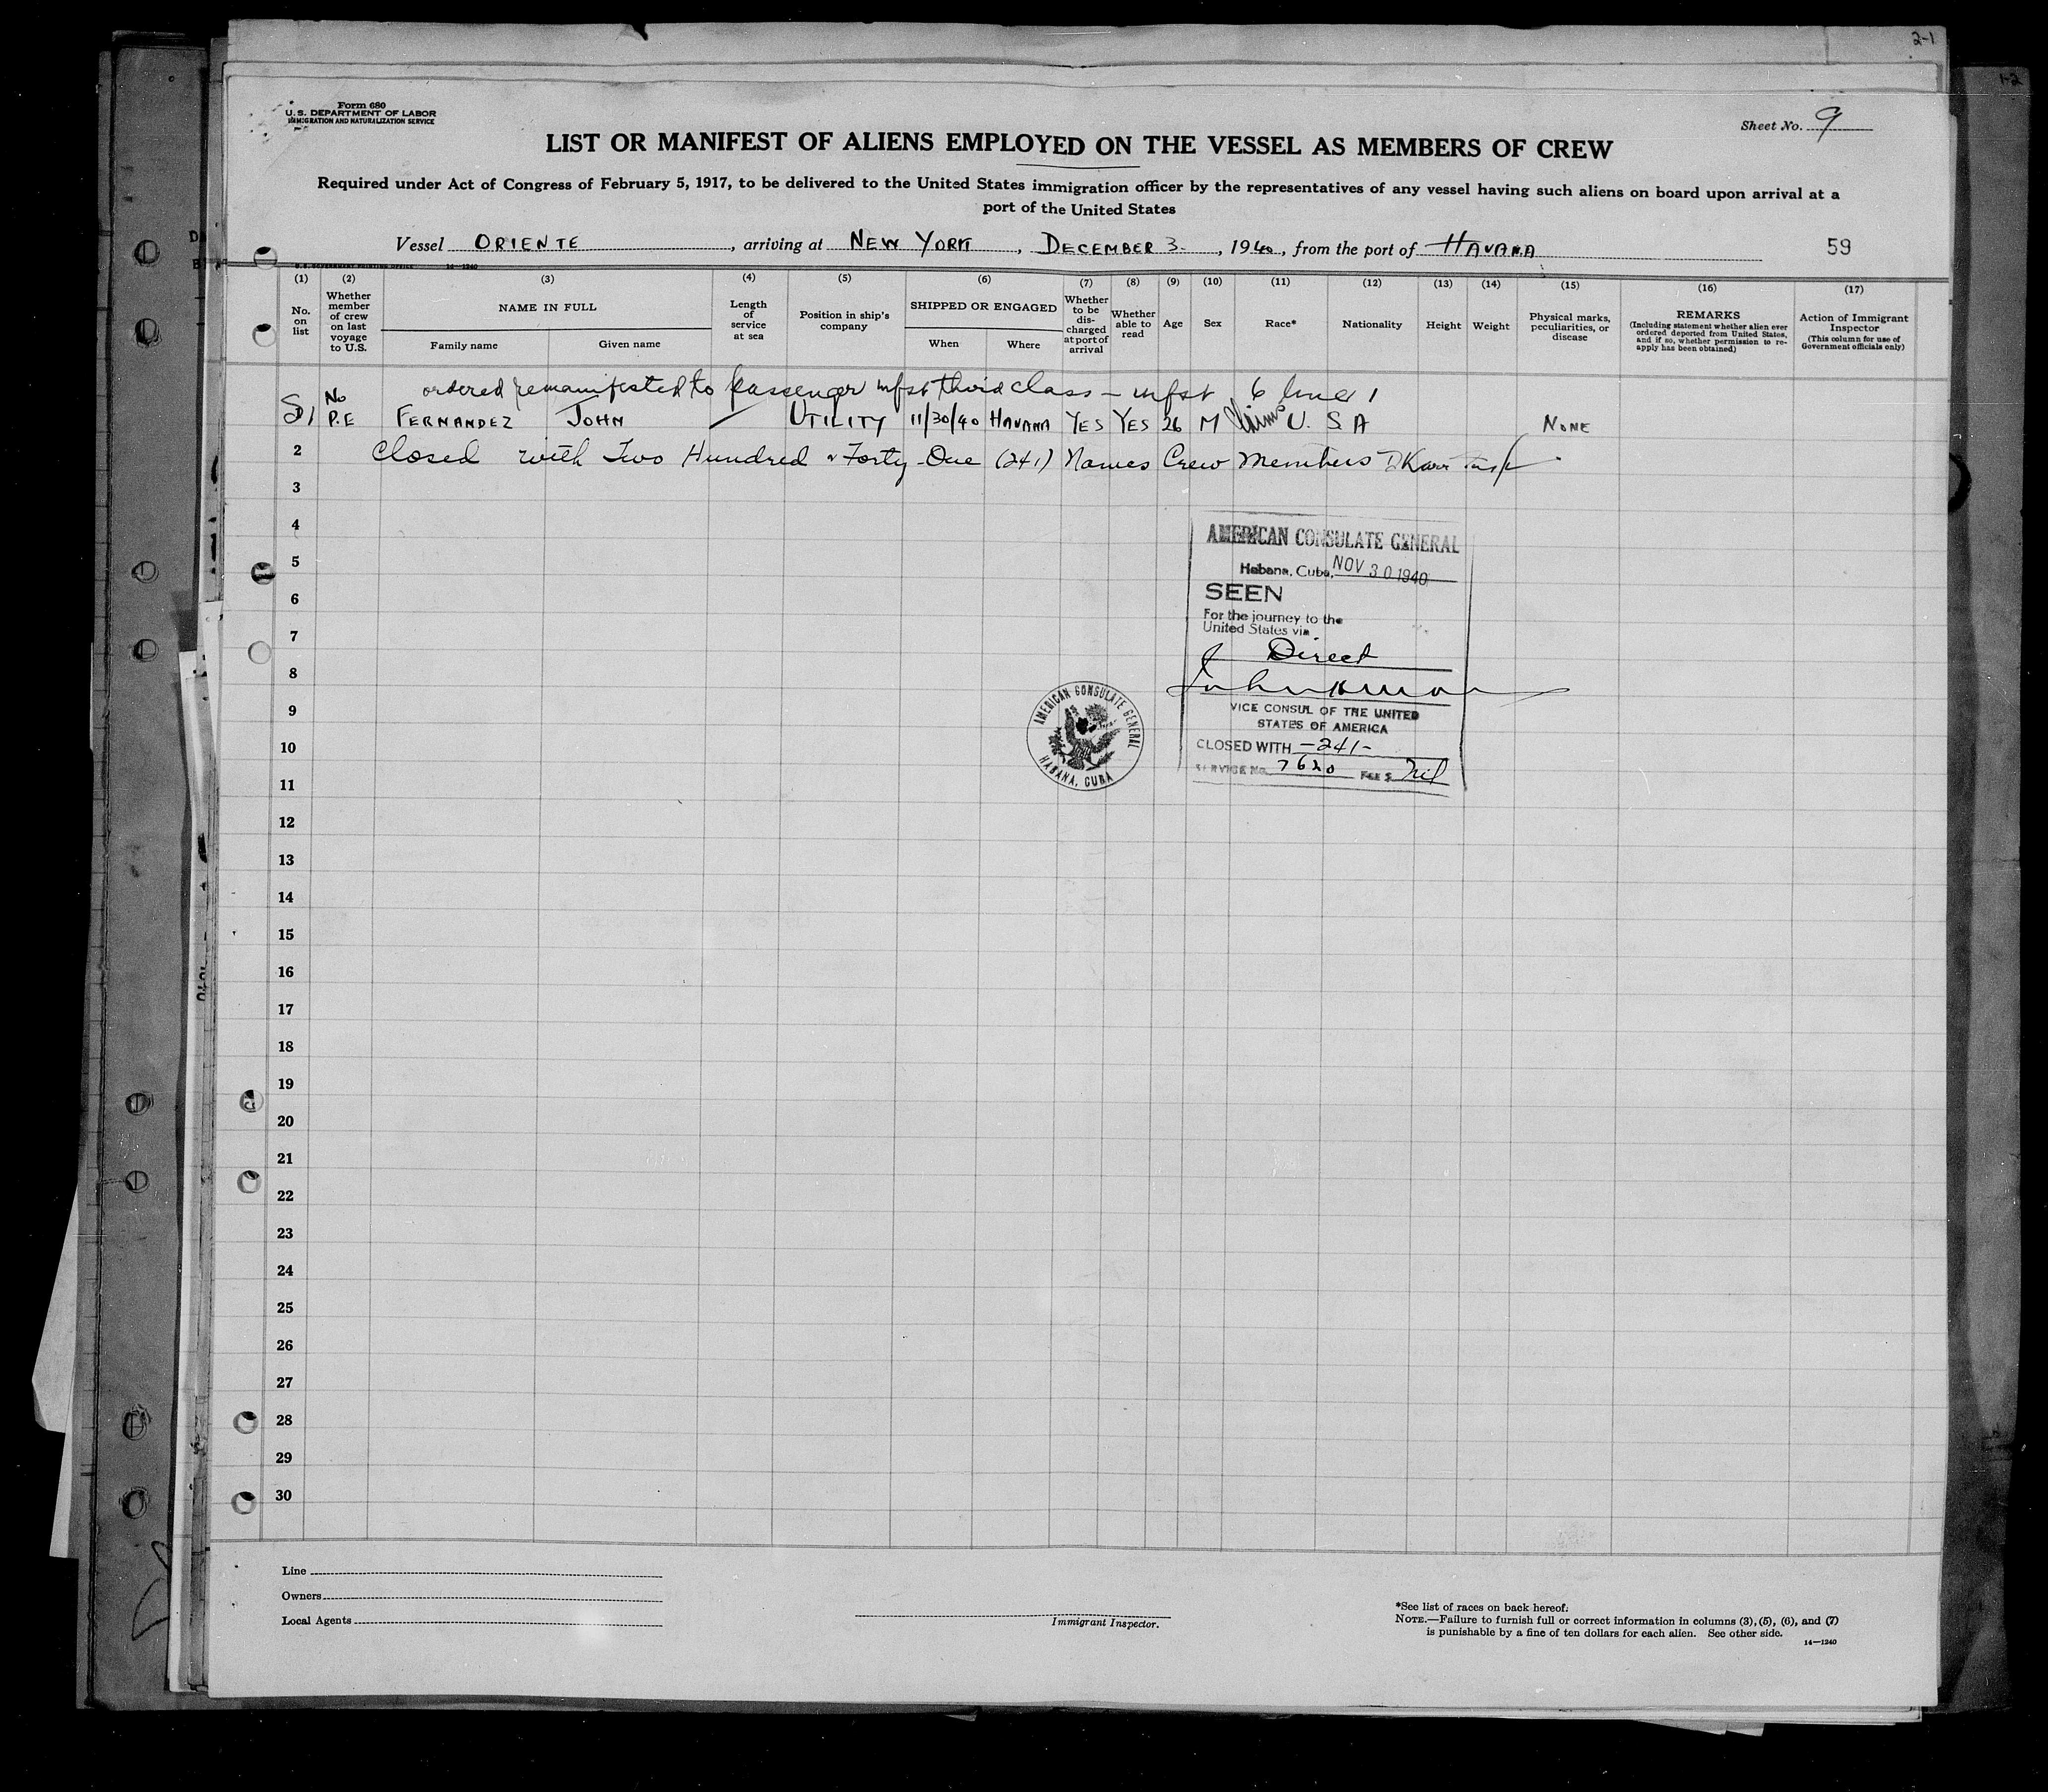 2-1
1-2
Form 680
U. S. DEPARTMENT OF LABOR
IMMIGRATION AND NATURALIZATION SERVICE
Sheet No. 9
LIST OR MANIFEST OF ALIENS EMPLOYED ON THE VESSEL AS MEMBERS OF CREW
Required under Act of Congress of February 5, 1917, to be delivered to the United States immigration officer by the representatives of any vessel having such aliens on board upon arrival at a
port of the United States
Vessel ORIENTE, arriving at NEW YORK, DECEMBER 3, 1940, from the port of HAVANA 59
U. S. GOVERNMENT PRINTING OFFICE 14—1240
(1) (2) (3) (4) (5) (6) (7) (8) (9) (10) (11) (12) (13) (14) (15) (16) (17)
No. on list
Whether member of crew on last voyage to U.S.
NAME IN FULL
Family name Given name
Length of service at sea
Position in ship's company
SHIPPED OR ENGAGED
When Where
Whether to be discharged at port of arrival
Whether able to read
Age
Sex
Race*
Nationality
Height
Weight
Physical marks, peculiarities, or disease
REMARKS
(Including statement whether alien ever ordered deported from United States, and if so, whether permission to reapply has been obtained)
Action of Immigrant Inspector
(This column for use of Government officials only)
ordered remanifested to passenger mfst third class — mfst 6 line 1
1 No P.E FERNANDEZ JOHN UTILITY 11/30/40 HAVANA YES YES 26 M U. S A NONE
2 Closed with Two Hundred & Forty-One (241) Names Crew Members
3
4
5
6
7
8
9
10
11
12
13
14
15
16
17
18
19
20
21
22
23
24
25
26
27
28
29
30
AMERICAN CONSULATE GENERAL
Habana, Cuba, NOV 30 1940
SEEN
For the journey to the
United States via
Direct
VICE CONSUL OF THE UNITED
STATES OF AMERICA
CLOSED WITH -241-
SERVICE No. 7620 FEES Nil
AMERICAN CONSULATE GENERAL
HABANA, CUBA
Line
Owners
Local Agents
Immigrant Inspector.
*See list of races on back hereof.
NOTE.—Failure to furnish full or correct information in columns (3), (5), (6), and (7)
is punishable by a fine of ten dollars for each alien. See other side.
14—1240